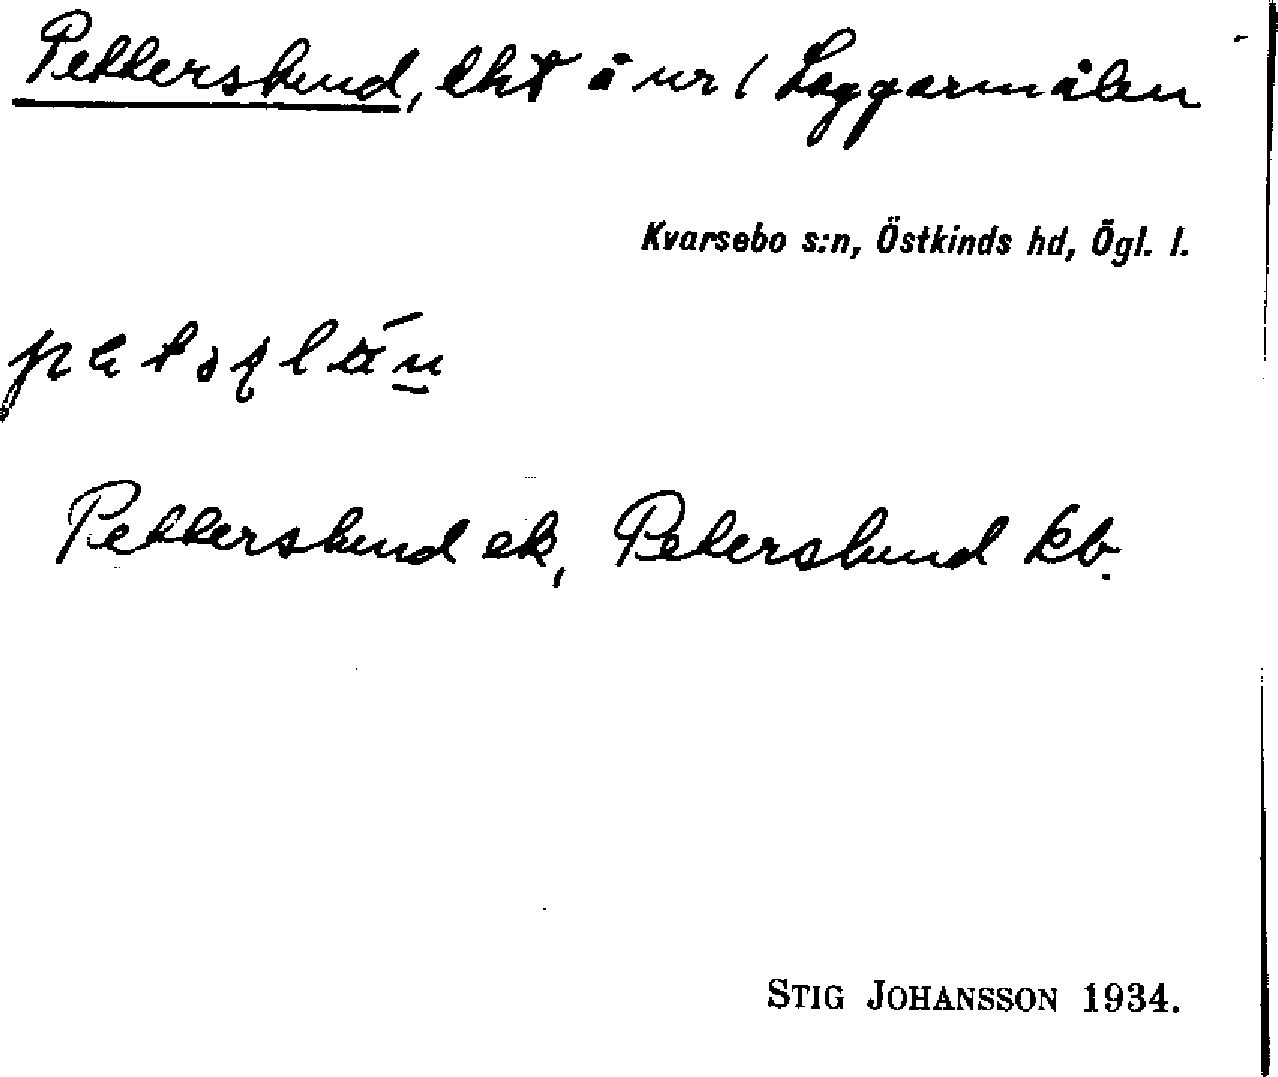 Pettersbund, lht å nr 1 Laggarmålen
Kvarsebo s:n, Östkinds hd, Ögl. l.
Petterslund ek, Peterslund kb.
STIG JOHANSSON 1934.